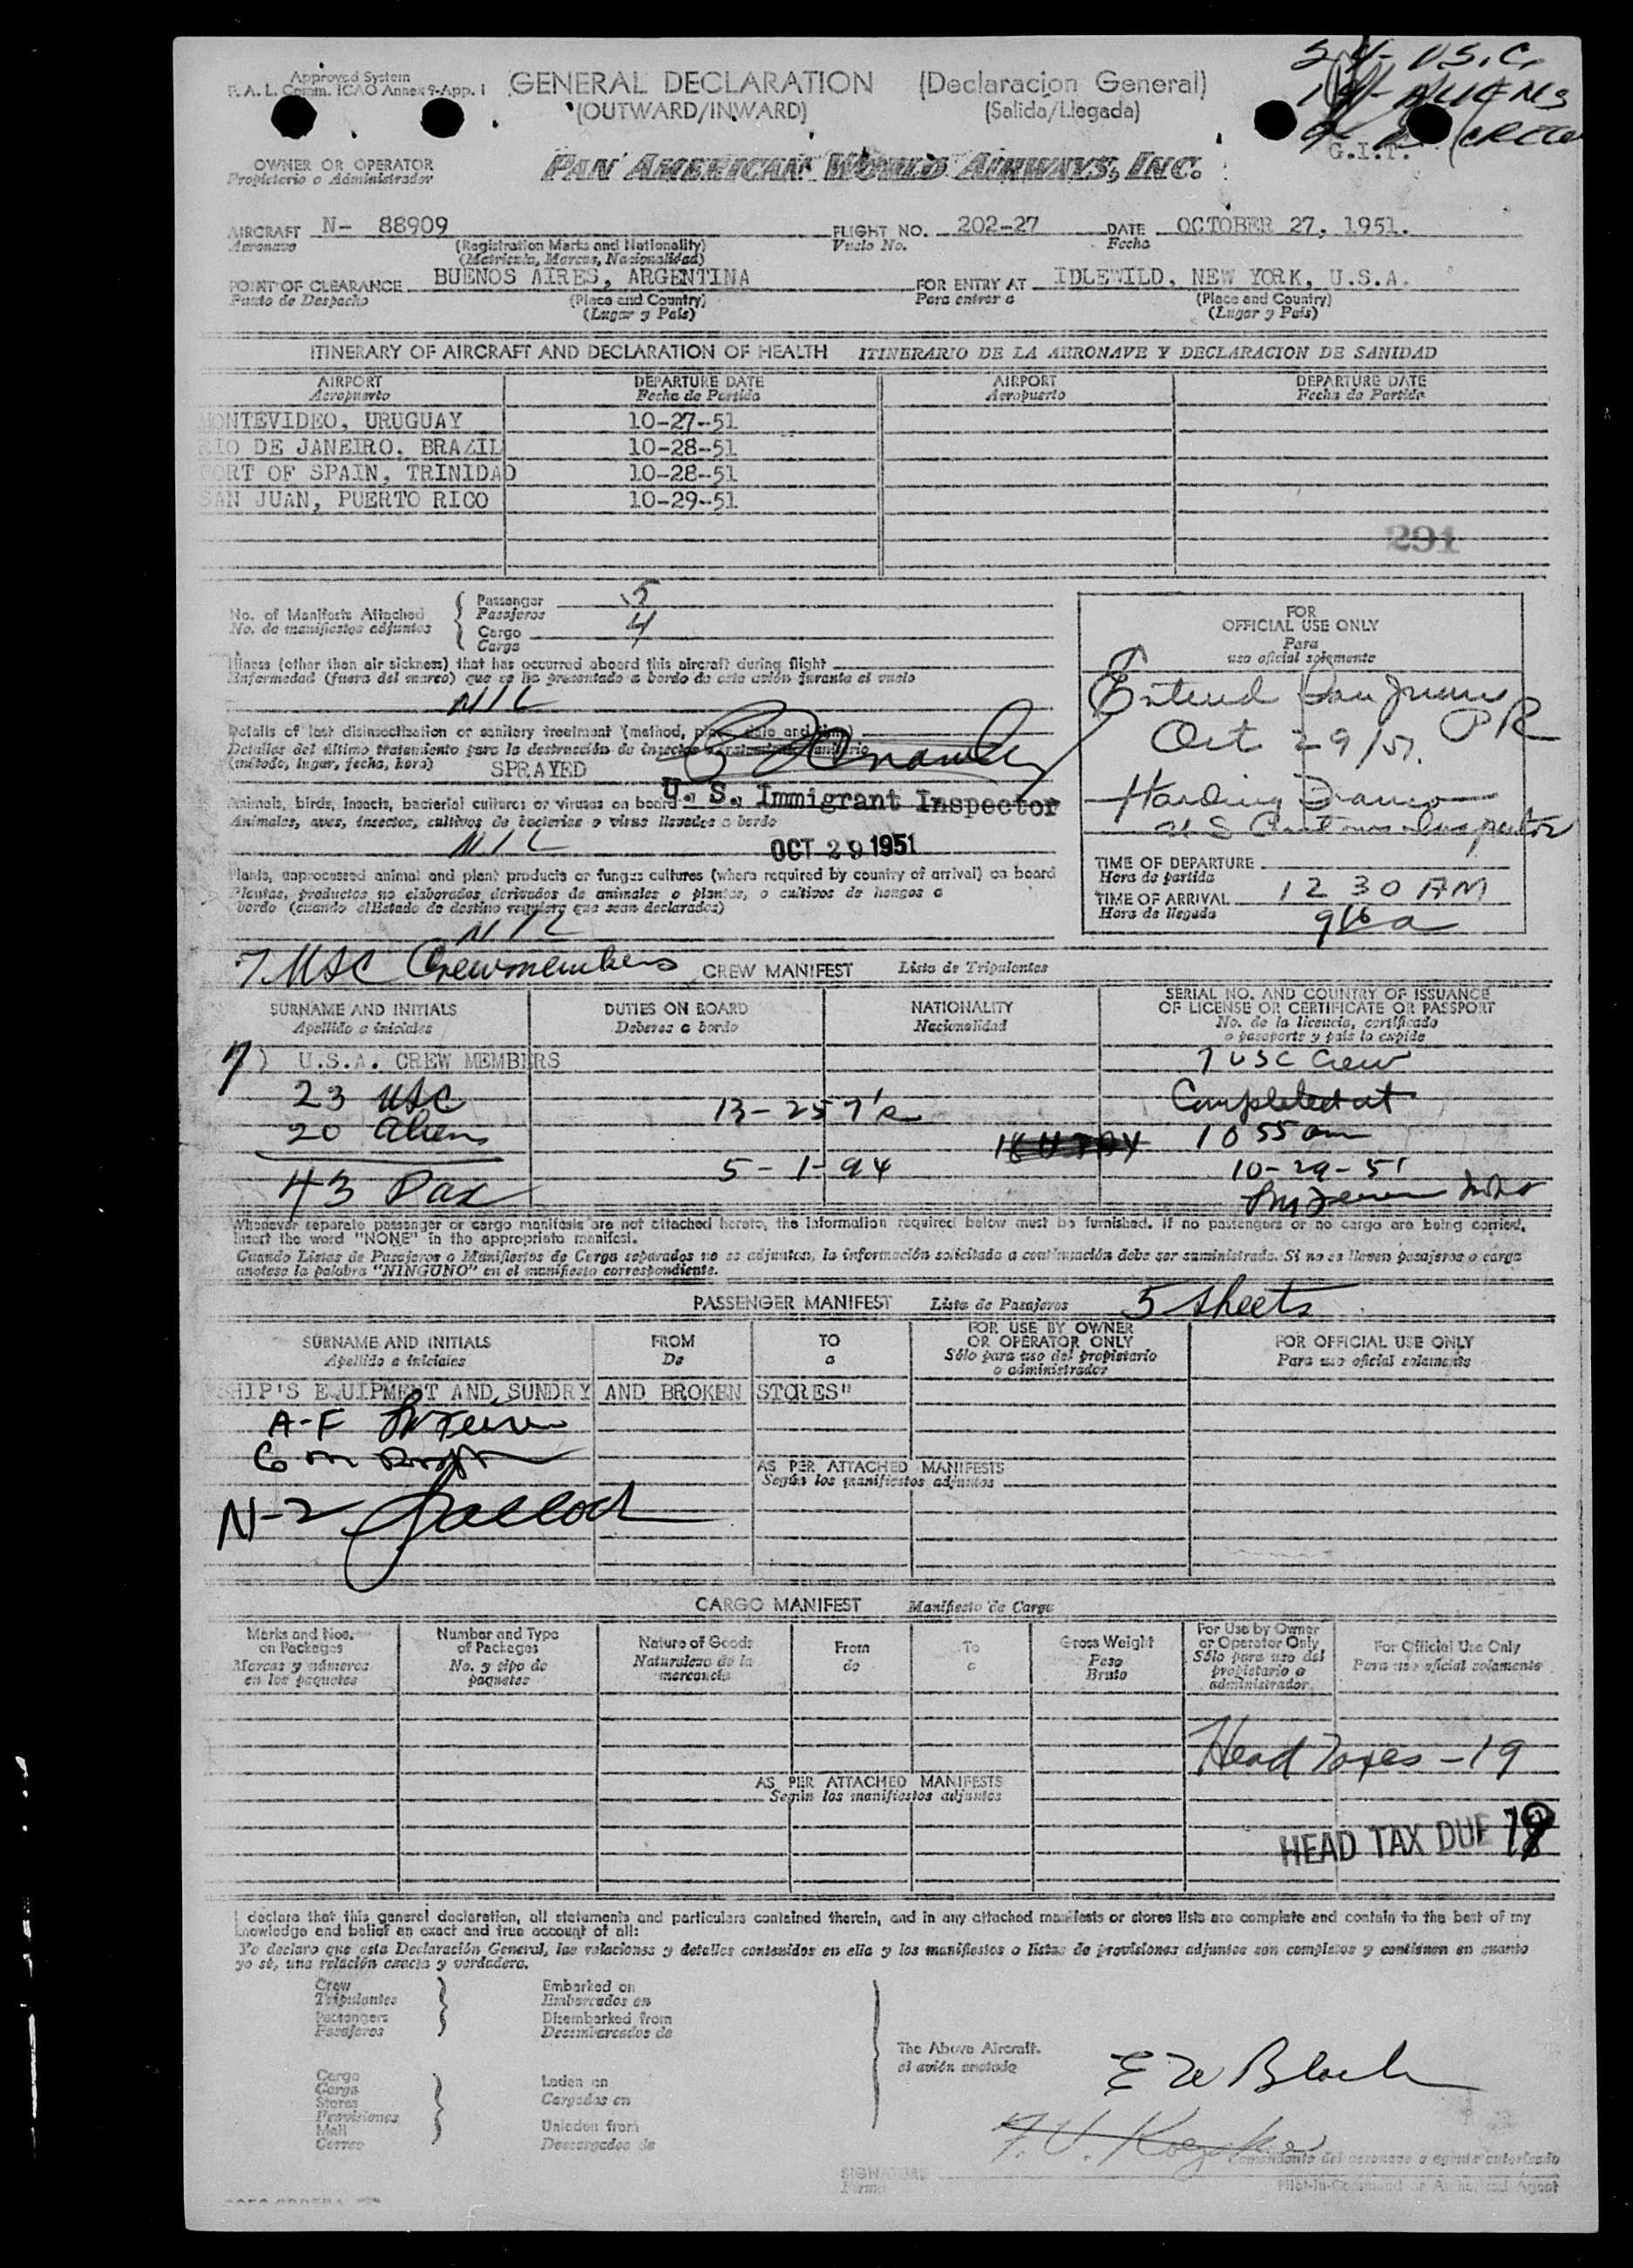 Approved System
F. A. L. Comm. ICAO Annex 9-App. 1
GENERAL DECLARATION (Declaracion General)
(OUTWARD/INWARD) (Salida/Llegada)
U.S.C.
G.I.T.
OWNER OR OPERATOR
Propietario o Administrador
PAN AMERICAN WORLD AIRWAYS, INC.
AIRCRAFT N- 88909 FLIGHT NO. 202-27 DATE OCTOBER 27, 1951.
Aeronave (Registration Marks and Nationality) Vuelo No. Fecha
(Matricula, Marcas, Nacionalidad)
POINT OF CLEARANCE BUENOS AIRES, ARGENTINA FOR ENTRY AT IDLEWILD, NEW YORK, U.S.A.
Punto de Despacho (Place and Country) Para entrar a (Place and Country)
(Lugar y País) (Lugar y País)
ITINERARY OF AIRCRAFT AND DECLARATION OF HEALTH ITINERARIO DE LA AERONAVE Y DECLARACION DE SANIDAD
AIRPORT DEPARTURE DATE AIRPORT DEPARTURE DATE
Aeropuerto Fecha de Partida Aeropuerto Fecha de Partida
MONTEVIDEO, URUGUAY 10-27-51
RIO DE JANEIRO, BRAZIL 10-28-51
PORT OF SPAIN, TRINIDAD 10-28-51
SAN JUAN, PUERTO RICO 10-29-51
291
No. of Manifests Attached
No. de manifiestos adjuntos
Passenger 5
Pasajeros
Cargo 4
Carga
Illness (other than air sickness) that has occurred aboard this aircraft during flight
Enfermedad (fuera del mareo) que se ha presentado a bordo de este avión durante el vuelo
NIL
Details of last disinsectization or sanitary treatment (method, place, date and time)
Detalles del último tratamiento para la destrucción de insectos
(método, lugar, fecha, hora) SPRAYED
U. S. Immigrant Inspector
Animals, birds, insects, bacterial cultures or viruses on board
Animales, aves, insectos, cultivos de bacterias o virus llevados a bordo
NIL
OCT 29 1951
Plants, unprocessed animal and plant products or fungus cultures (where required by country of arrival) on board
Plantas, productos no elaborados derivados de animales o plantas, o cultivos de hongos a
bordo (cuando el Estado de destino requiera que sean declarados)
NIL
FOR
OFFICIAL USE ONLY
Para
uso oficial solamente
Entered San Juan
PR
Oct 29/51.
Harding Franco
US Customs Inspector
TIME OF DEPARTURE
Hora de partida
TIME OF ARRIVAL 12 30 AM
Hora de llegada
916a
7 USC Crewmembers CREW MANIFEST Lista de Tripulantes
SURNAME AND INITIALS DUTIES ON BOARD NATIONALITY SERIAL NO. AND COUNTRY OF ISSUANCE
OF LICENSE OR CERTIFICATE OR PASSPORT
Apellido e iniciales Deberes a bordo Nacionalidad No. de la licencia, certificado
o pasaporte y país lo expide
(7) U.S.A. CREW MEMBERS 7 USC Crew
23 USC 13-257's Completed at
20 Aliens 10 55 am
43 Pax 5-1-94 10-29-51
Whenever separate passenger or cargo manifests are not attached hereto, the information required below must be furnished. If no passengers or no cargo are being carried,
insert the word "NONE" in the appropriate manifest.
Cuando Listas de Pasajeros o Manifiestos de Carga separados no se adjuntan, la información solicitada a continuación debe ser suministrada. Si no se llevan pasajeros o carga
anotese la palabra "NINGUNO" en el manifiesto correspondiente.
PASSENGER MANIFEST Lista de Pasajeros 5 sheets
SURNAME AND INITIALS FROM TO FOR USE BY OWNER
OR OPERATOR ONLY FOR OFFICIAL USE ONLY
Apellido e iniciales De a Sólo para uso del propietario
o administrador Para uso oficial solamente
SHIP'S EQUIPMENT AND SUNDRY AND BROKEN STORES"
A-F
N-2
AS PER ATTACHED MANIFESTS
Según los manifiestos adjuntos
CARGO MANIFEST Manifiesto de Carga
Marks and Nos.
on Packages
Marcas y números
en los paquetes
Number and Type
of Packages
No. y tipo de
paquetes
Nature of Goods
Naturaleza de la
mercancía
From
de
To
a
Gross Weight
Peso
Bruto
For Use by Owner
or Operator Only
Sólo para uso del
propietario o
administrador
For Official Use Only
Para uso oficial solamente
Head Taxes - 19
AS PER ATTACHED MANIFESTS
Según los manifiestos adjuntos
HEAD TAX DUE 19
I declare that this general declaration, all statements and particulars contained therein, and in any attached manifests or stores lists are complete and contain to the best of my
knowledge and belief an exact and true account of all:
Yo declaro que esta Declaración General, las relaciones y detalles contenidos en ella y los manifiestos o listas de provisiones adjuntos son completos y contienen en cuanto
yo sé, una relación exacta y verdadera.
Crew
Tripulantes
Passengers
Pasajeros
Embarked on
Embarcados en
Disembarked from
Desembarcados de
Cargo
Carga
Stores
Provisiones
Mail
Correo
Laden on
Cargados en
Unladen from
Descargados de
The Above Aircraft.
el avión anotado
E W Black
SIGNATURE
Firma
Comandante del aeronave o agente autorizado
Pilot-in-Command or Authorized Agent